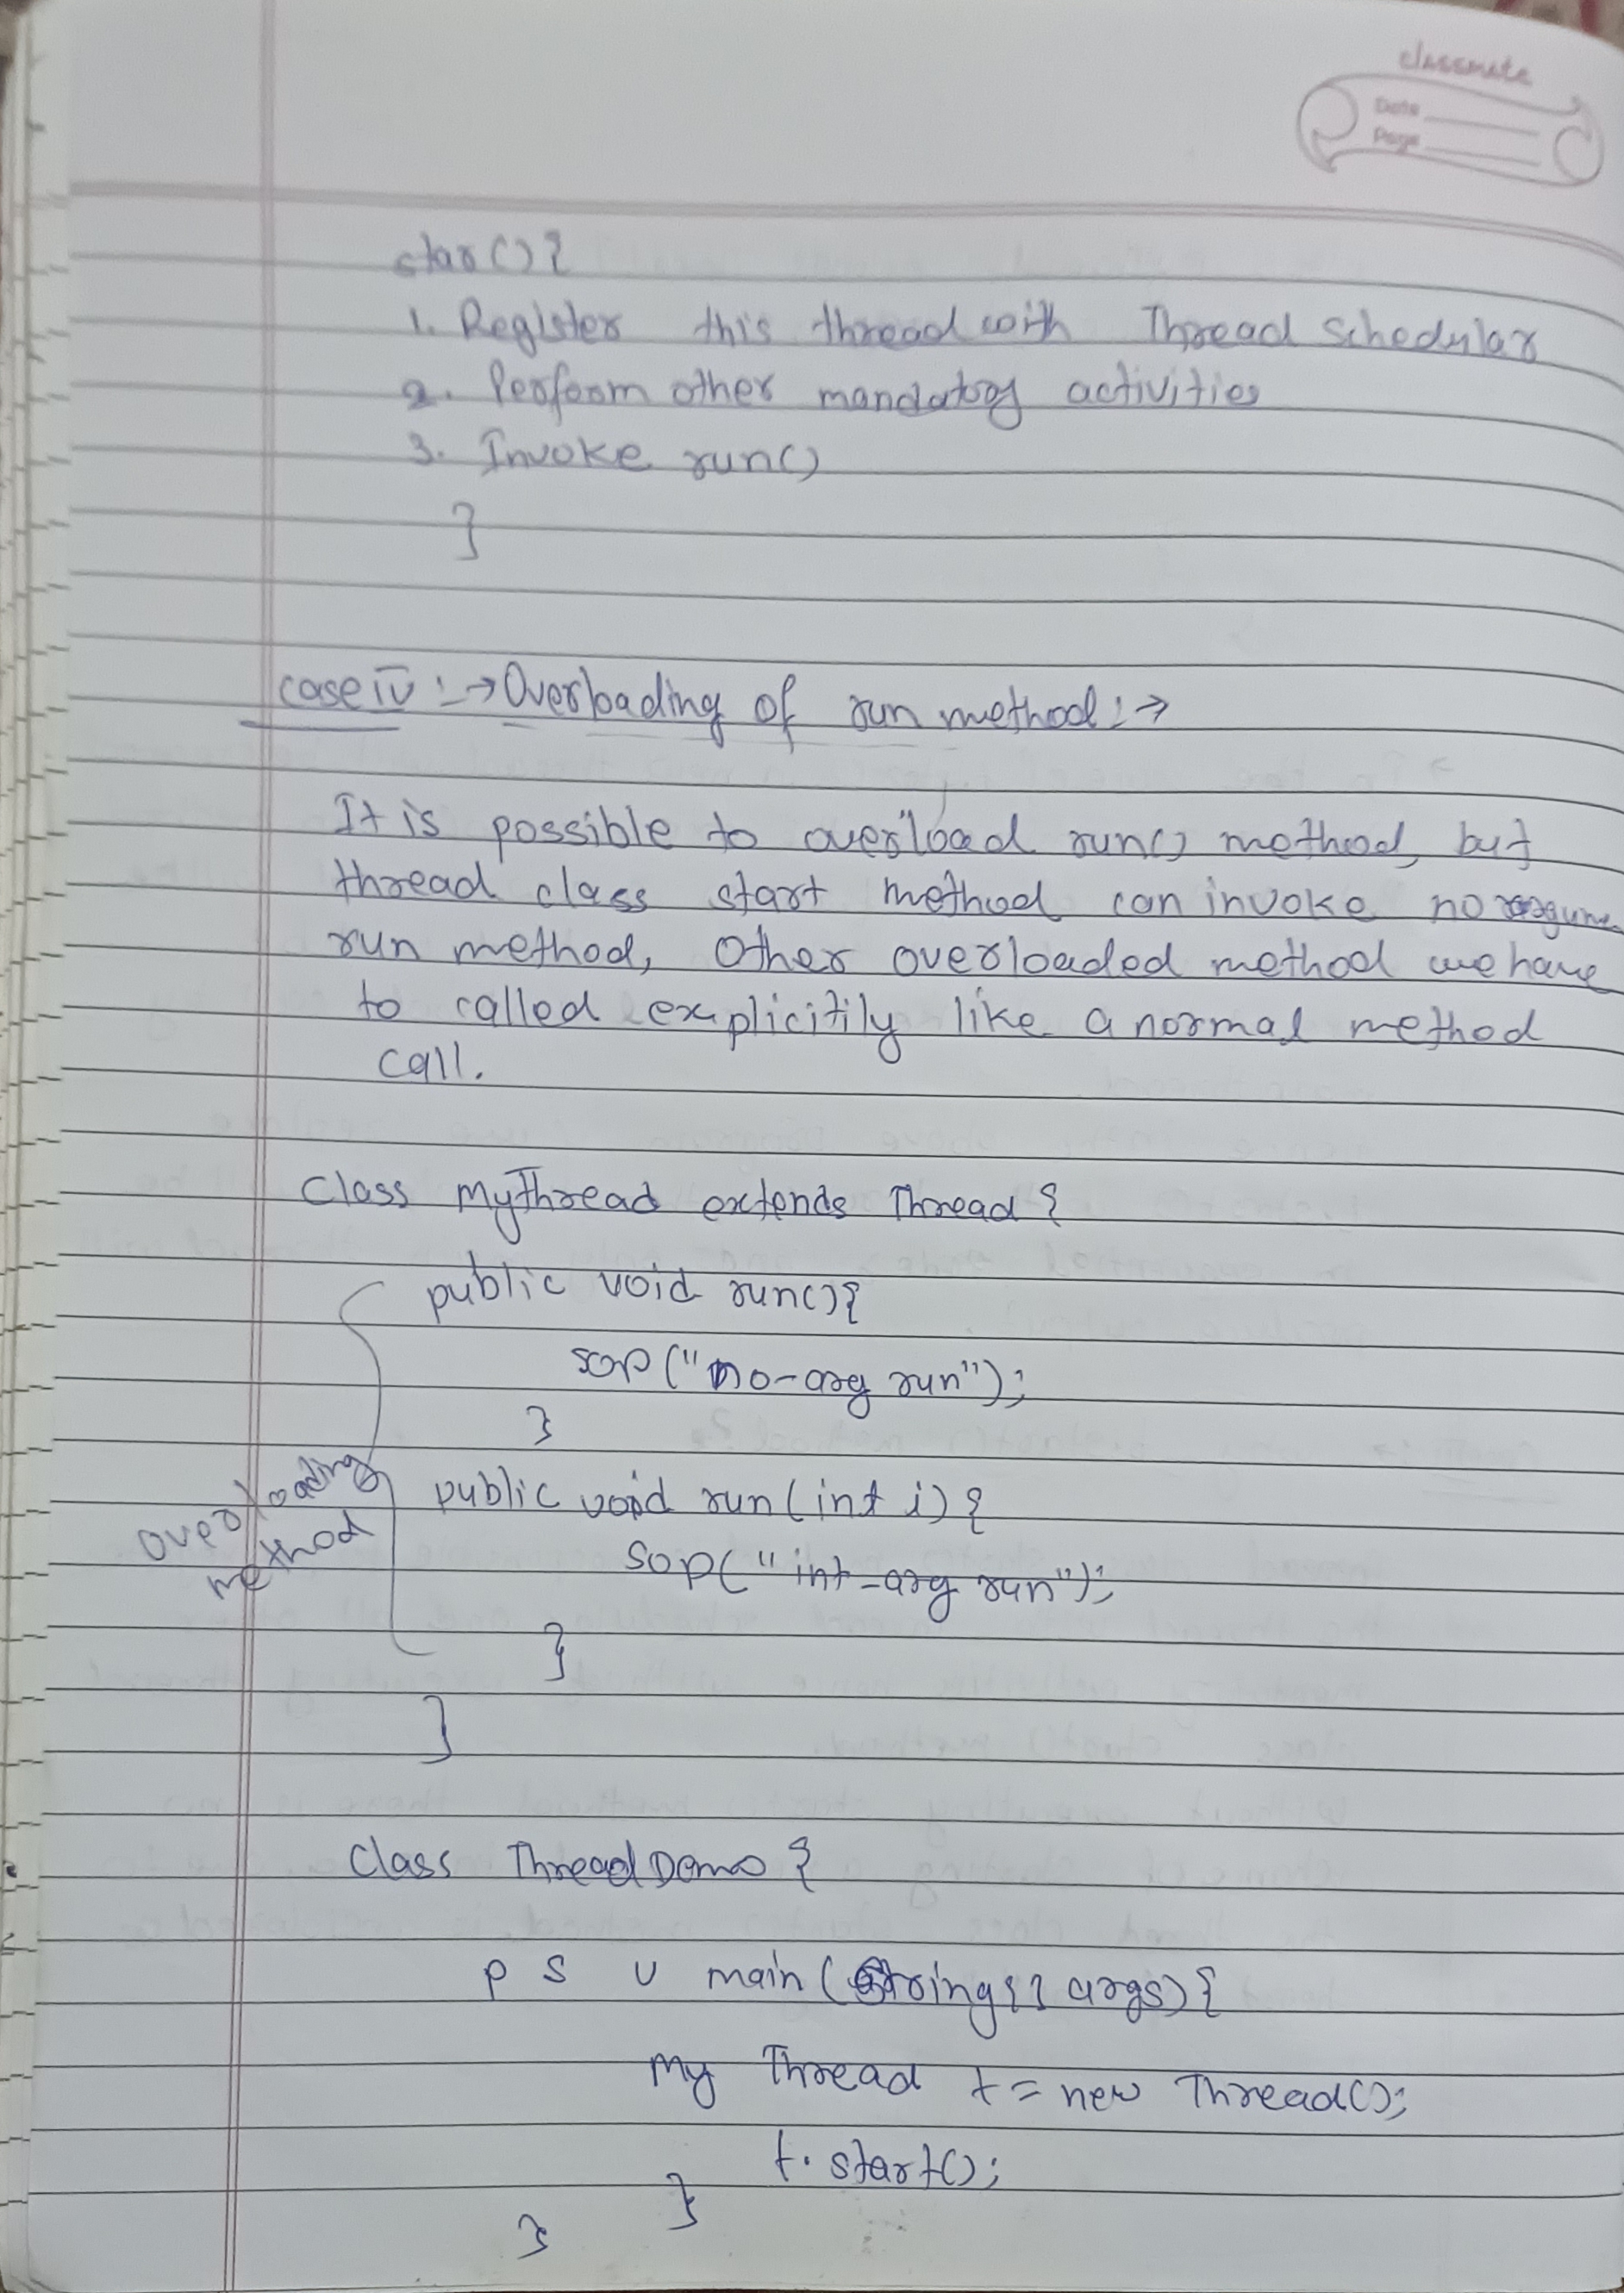 classmate
Date
Page
star() {
1. Register this thread with Thread Schedular
2. Perform other mandatory activities
3. Invoke run()
}
case IV :→ Overloading of run method :→
It is possible to overload run() method, but
thread class start method can invoke no
run method, Other overloaded method we have
to called explicitily like a normal method
call.
Class MyThread extends Thread {
public void run() {
sop ("no-arg run");
}
overloading
method
public void run (int i) {
sop("int-arg run");
}
}
Class ThreadDemo {
p s v main (String[] args) {
My Thread t = new Thread();
t. start();
}
}